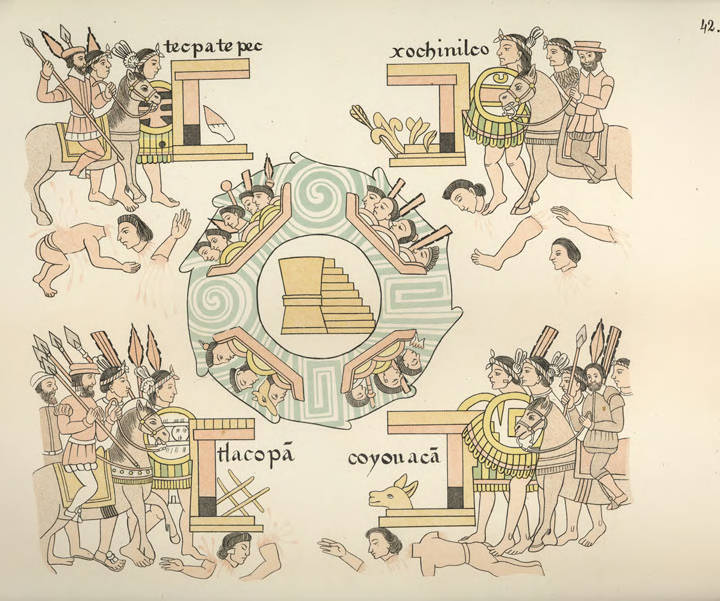 42.
tecpatepec
xochinilco
tlacopā
coyouacā